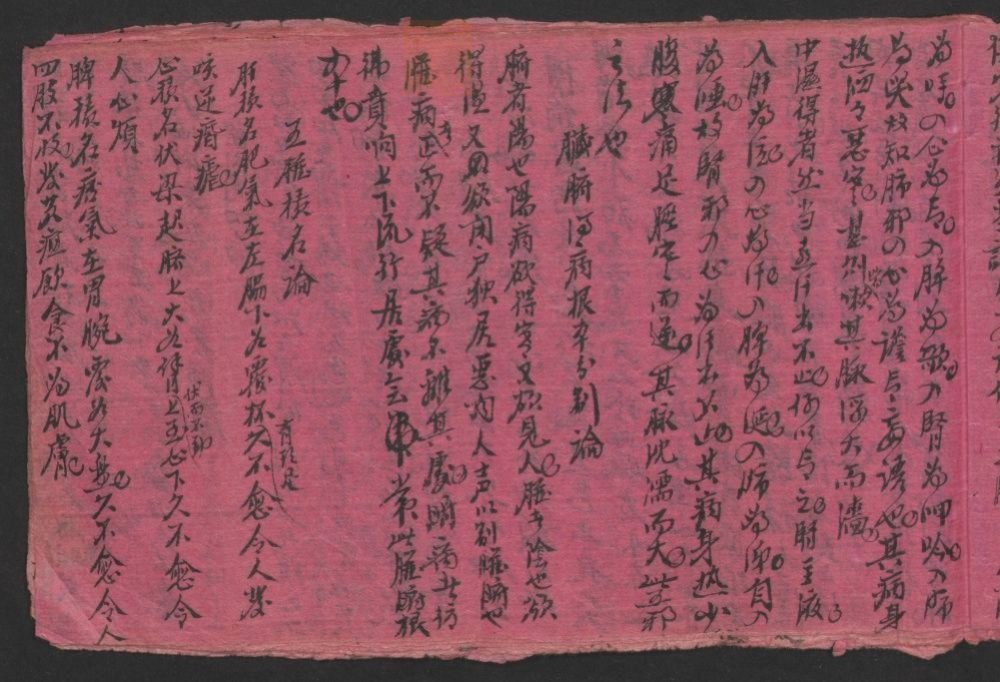 為呼入心為言入脾為歌入腎為呻吟入肺
為哭故知肺邪入心為譫言妄語也其病身
热洒々惡寒甚則喘咳其脉浮大而濇
中濕得者然当喜汗出不止何以言之腎主液
入肝為泣入心為汗入脾為涎入肺為涕自入
為唾故腎邪入心為汗出不止其病身热少
腹寒痛足脛寒而逆其脉沉濡而大此五邪
之法也
臟腑得病根本分别論
腑者陽也陽病欲得寒又欲見人臟者陰也欲
得温又欲闭户独居惡闻人声以别臟腑也
臟病正而不疑其病不離其處腑病者彷
彿賁响上下流行居處無常此臟腑根
本也
五臟積名論
肝積名肥氣在左脇下如覆杯有頭足久不愈令人發
咳逆痎瘧
心積名伏梁起臍上大如臂上至心下伏而不動久不愈令
人心煩
脾積名痞氣在胃脘覆如大盤久不愈令人
四肢不收發黄疸飲食不為肌膚